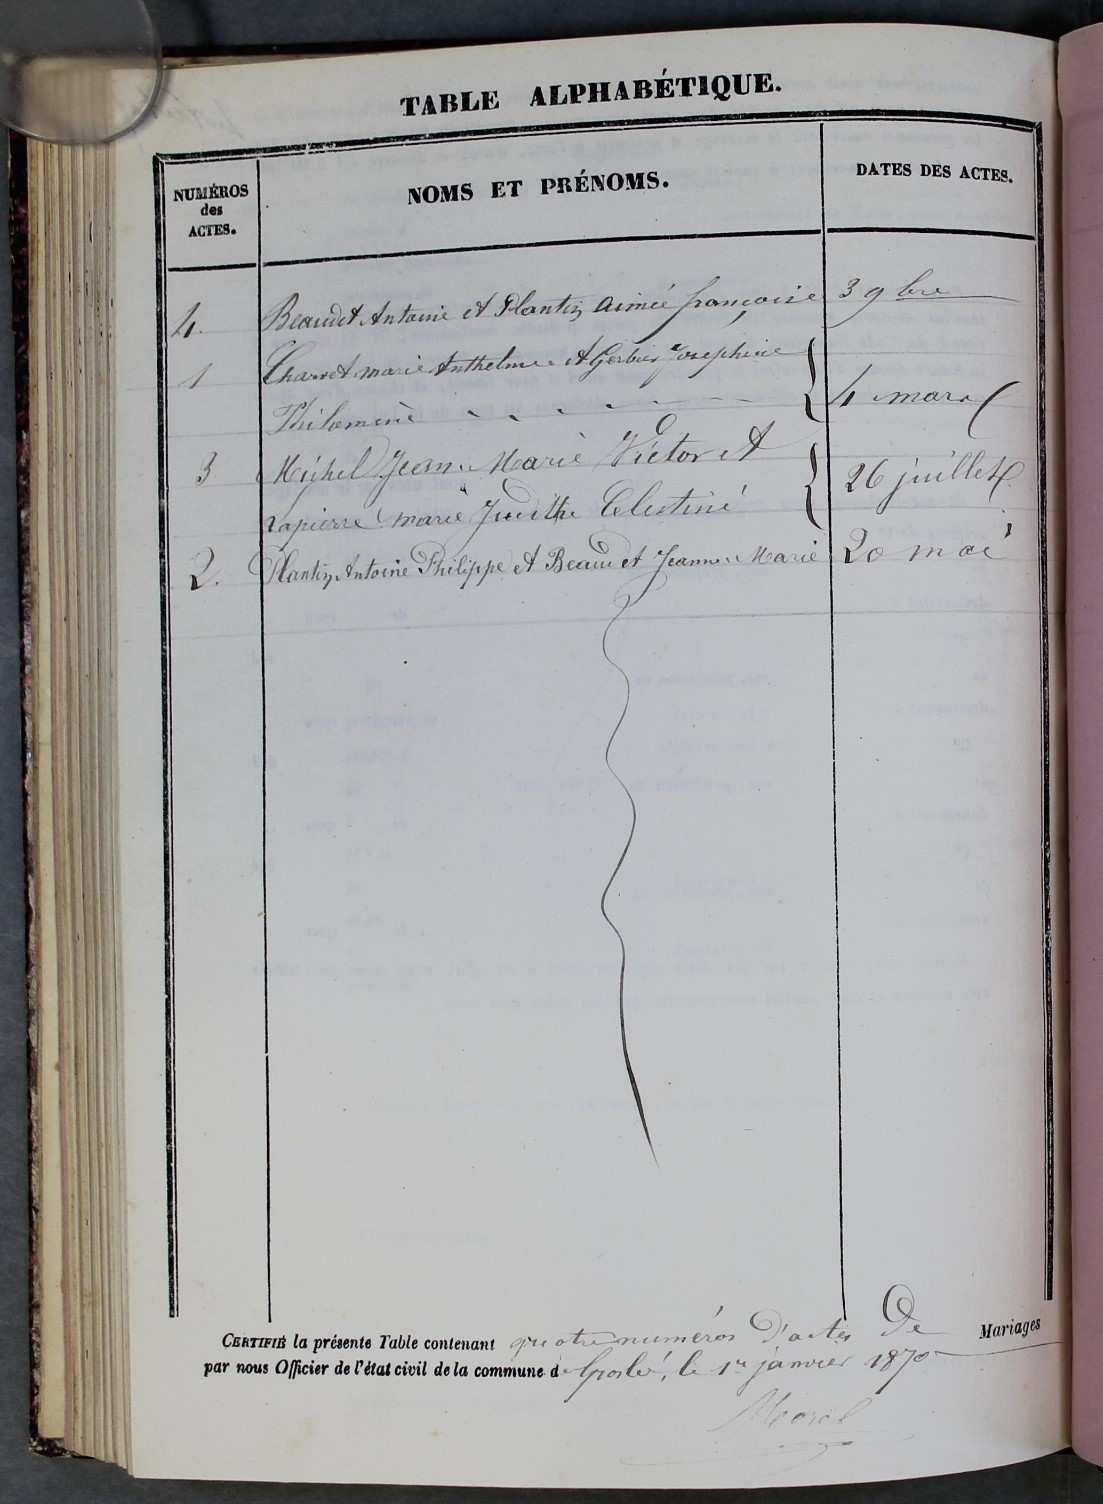 TABLE ALPHABÉTIQUE.
NUMÉROS
des
ACTES.
NOMS ET PRÉNOMS.
DATES DES ACTES.
4. Beaudet Antoine et Plantin aimée françoise 3 9bre
1 Charvet marie Anthelme et Gerbier Josephine
Philomène 4 mars
3 Michel Jean Marie Victor et
Lapierre marie Judithe Celestine 26 juillet
2. Plantin Antoine Philippe et Beaudet Jeanne Marie 20 mai
CERTIFIÉ la présente Table contenant quatre numéros D'actes De Mariages
par nous Officier de l'état civil de la commune de Groslée, le 1er janvier 1870
Morel